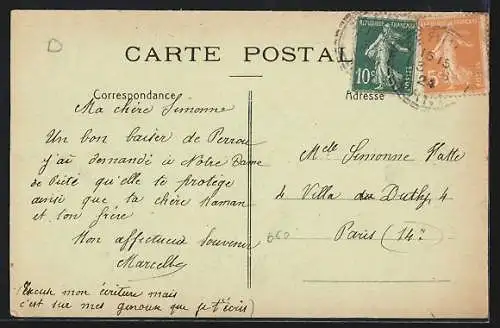 CARTE POSTALE
Correspondance
Adresse
REPUBLIQUE FRANÇAISE
10c
REPUBLIQUE FRANÇAISE
5c
15 15
Ma chère Simonne
Un bon baiser de Perrou
j'ai demandé à Notre Dame
de Pitié qu'elle te protège
ainsi que ta chère Maman
et ton frère
Mon affectueux Souvenir
Marcelle
(Excuse mon écriture mais
c'est sur mes genoux que je t'écris)
Melle Simonne
4 Villa 4
Paris (14e)